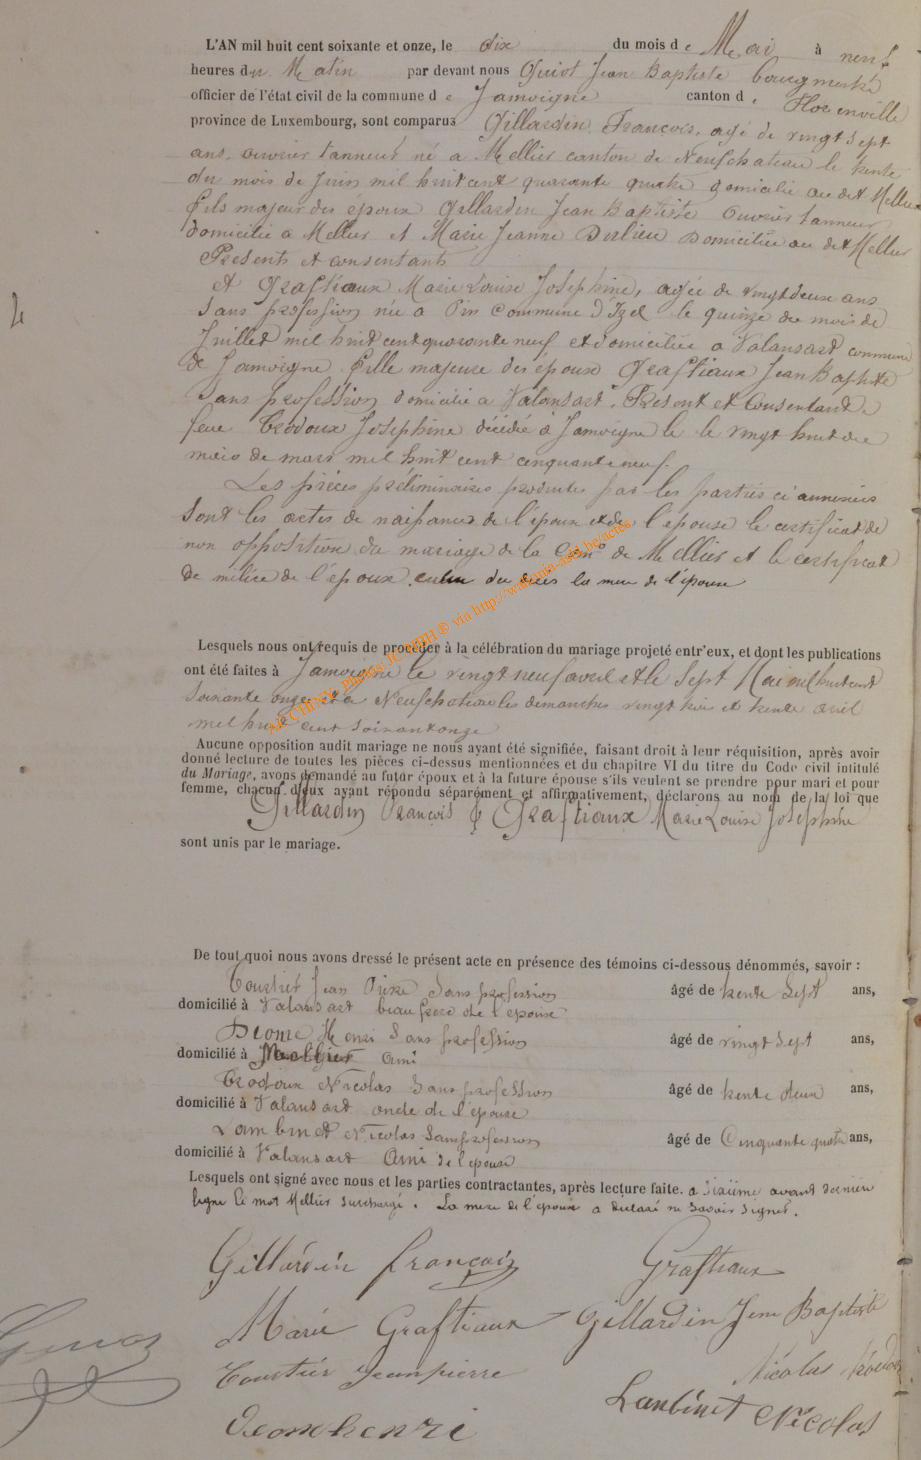 L'AN mil huit cent soixante et onze, le dix du mois de Mai à neuf
heures du Matin par devant nous Guiot Jean Baptiste bourgmestre
officier de l'état civil de la commune de Jamoigne canton de Florenville
province de Luxembourg, sont comparus Gillardin François, agé de vingt sept
ans, ouvrier tanneur né a Mellier canton de Neufchateau le trente
du mois de Juin mil huit cent quarante quatre domicilié au dit Mellier
fils majeur des époux Gillardin Jean Baptiste ouvrier tanneur
domicilié a Mellier et Marie Jeanne domiciliée au dit Mellier
Presents et consentants
et Graftiaux Marie Louise Joséphine, agée de vingt deux ans
sans profession née a Pin Commune d'Izel le quinze du mois de
Juillet mil huit cent quarante neuf et domiciliée a Valansart commune
de Jamoigne fille majeure des époux Graftiaux Jean Baptiste
sans profession domicilié a Valansart. Présent et Consentant.
feue Trodoux Joséphine décédée à Jamoigne le le vingt huit du
mois de mars mil huit cent cinquante neuf.
Les pièces préliminaires produites par les parties ci annexées
sont les actes de naissances de l'époux et de l'épouse le certificat de
non opposition du mariage de la Comne de Mellier et le certificat
de milice de l'époux. celui du décès la mere de l'épouse
ARCHIVES Photos JC ARBH ® via http://wallonia-asbl.be/actes
Lesquels nous ont requis de procéder à la célébration du mariage projeté entr'eux, et dont les publications
ont été faites à Jamoigne le vingt neuf avril et le sept Mai mil huit cent
soixante onze et a Neufchateau les dimanches vingt trois et trente avril
mil huit cent soixante onze
Aucune opposition audit mariage ne nous ayant été signifiée, faisant droit à leur réquisition, après avoir
donné lecture de toutes les pièces ci-dessus mentionnées et du chapitre VI du titre du Code civil intitulé
du Mariage, avons demandé au futur époux et à la future épouse s'ils veulent se prendre pour mari et pour
femme, chacun d'eux ayant répondu séparément et affirmativement, déclarons au nom de la loi que
Gillardin François & Graftiaux Marie Louise Joséphine
sont unis par le mariage.
De tout quoi nous avons dressé le présent acte en présence des témoins ci-dessous dénommés, savoir :
Tourtier Jean Pierre sans profession âgé de trente sept ans,
domicilié à Valansart beau frere de l'épouse
Henri sans profession âgé de vingt sept ans,
domicilié à Mellier ami
Trodoux Nicolas sans profession âgé de trente deux ans,
domicilié à Valansart oncle de l'épouse
Lambinet Nicolas sans profession âgé de Cinquante quatre ans,
domicilié à Valansart Ami de l'épouse
Lesquels ont signé avec nous et les parties contractantes, après lecture faite. a avant dernière
ligne le mot Mellier surchargé. La mere de l'époux a déclaré ne savoir signer.
Gillardin françois Graftiaux
Marie Graftiaux Gillardin Jean Baptiste
Tourtier Jeanpierre Nicolas
henri Lanbinet Nicolas